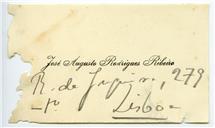 José Augusto Rodrigues Ribeiro
R. de 279
-1º Lisboa